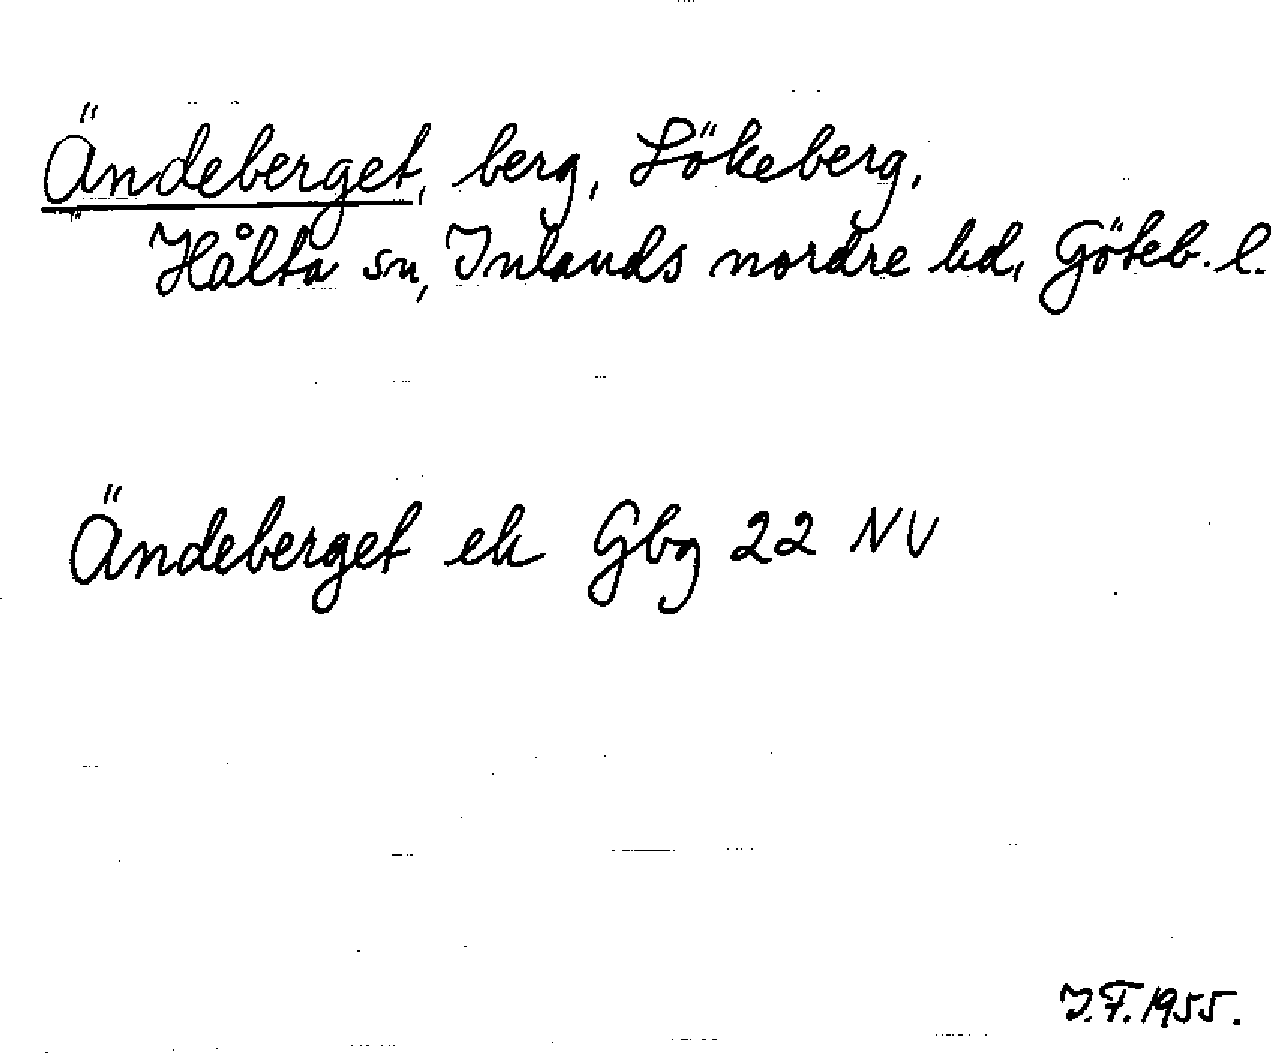 Ändeberget, berg, Lökeberg,
Hålta sn, Inlands nordre hd, Göteb. l.
Ändeberget ek Gbg 22 NV
I.F. 1955.